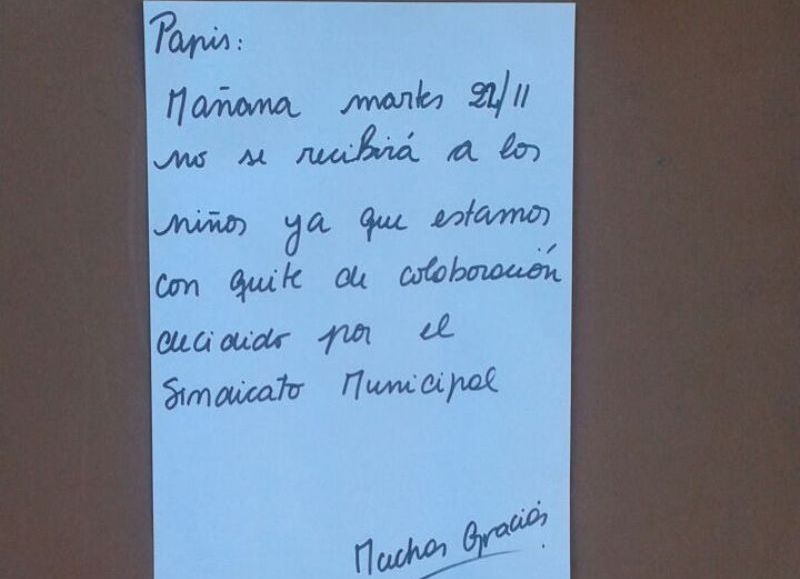 Papis:
Mañana martes 22/11
no se recibirá a los
niños ya que estamos
con quite de colaboración
decidido por el
Sindicato Municipal
Muchas Gracias.